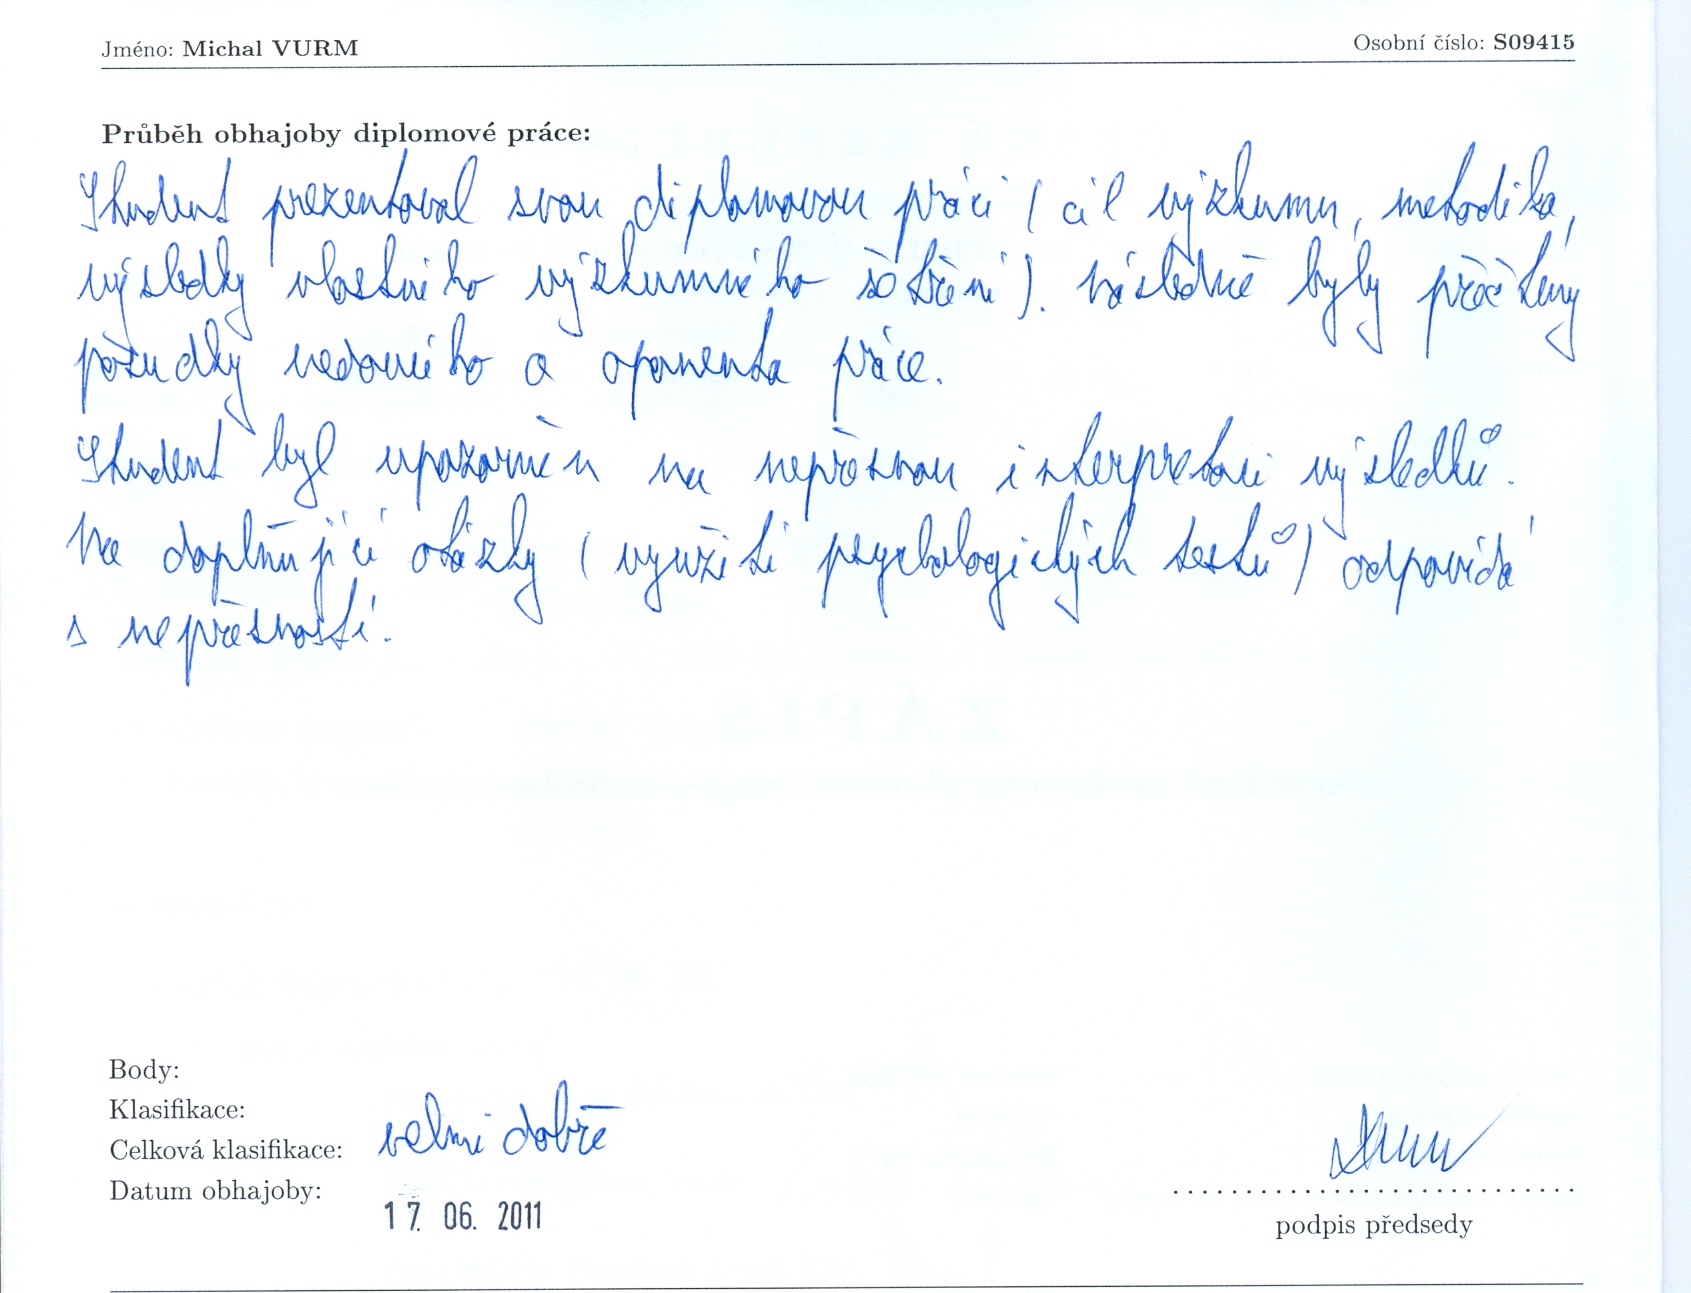 Jméno: Michal VURM Osobní číslo: S09415
Průběh obhajoby diplomové práce:
Student prezentoval svou diplomovou práci (cíl výzkumu, metodika,
výsledky vlastního výzkumného šetření). Následně byly přečteny
posudky vedoucího a oponenta práce.
Student byl upozorněn na nepřesnou interpretaci výsledků.
Na doplňující otázky (využití psychologických testů) odpovídá
s nepřesností.
ZÁPIS
Body:
Klasifikace:
Celková klasifikace: velmi dobře
Datum obhajoby: 17. 06. 2011
podpis předsedy